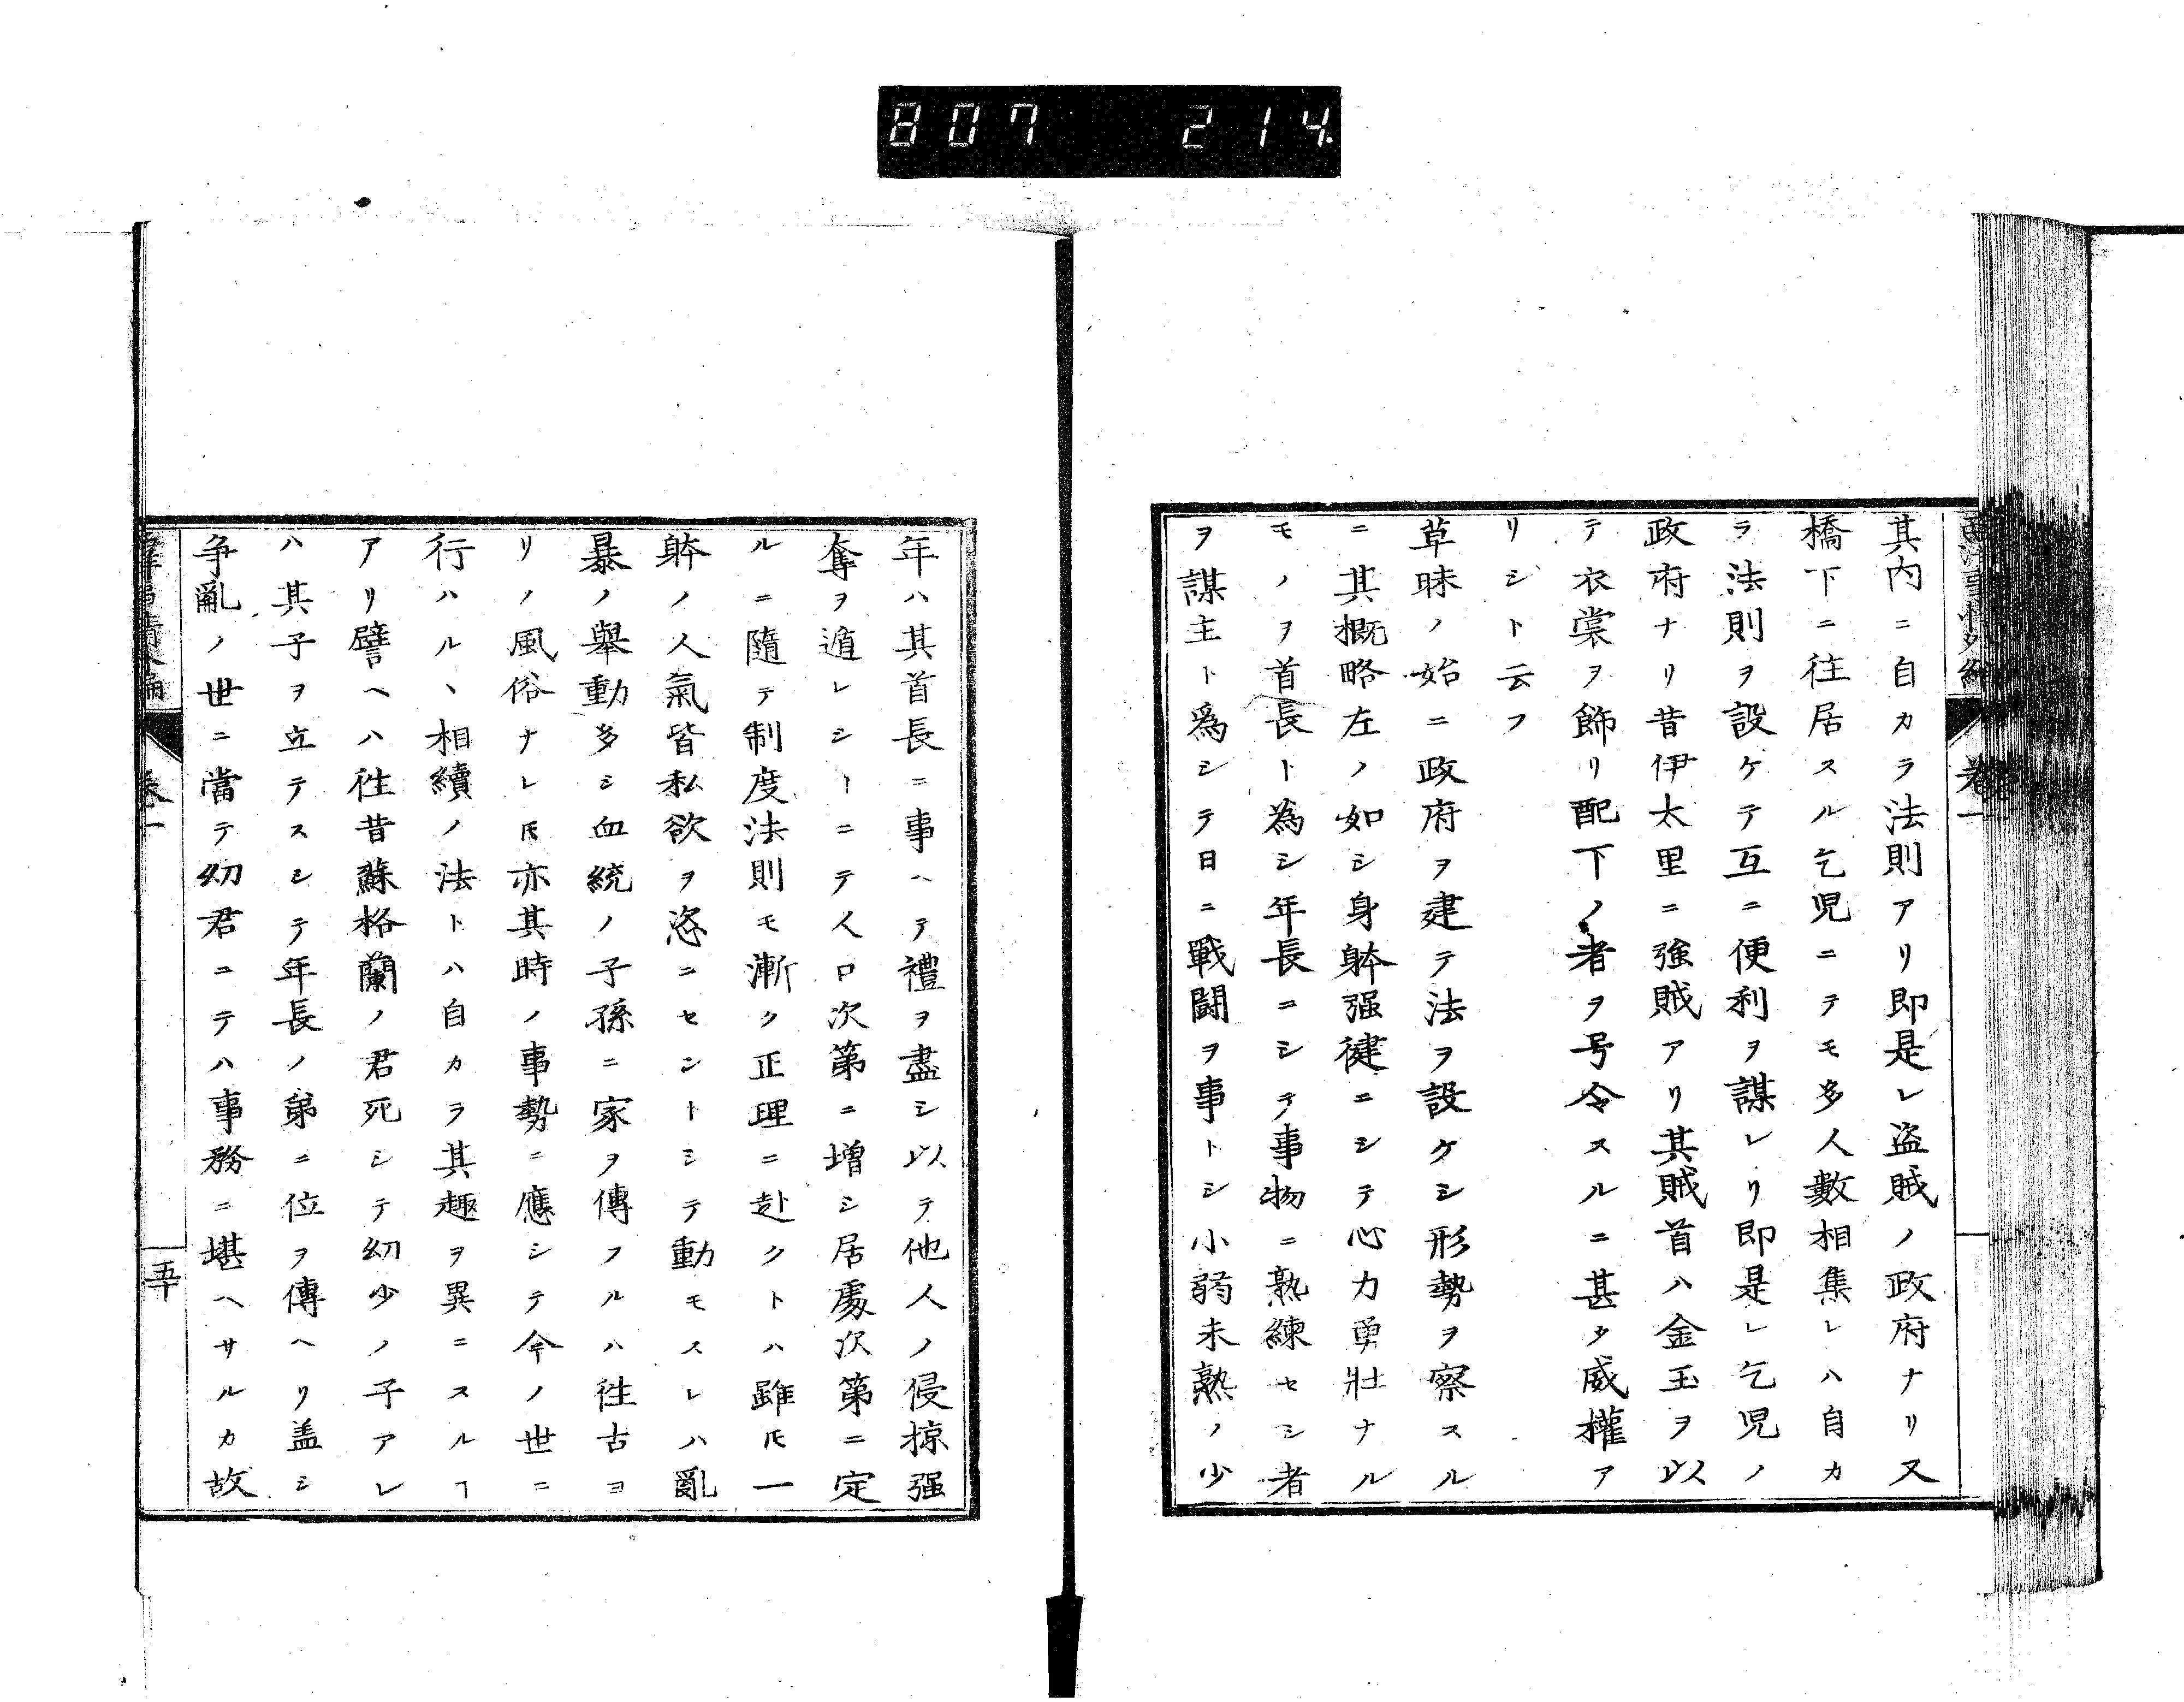 807 214
其内ニ自カラ法則アリ即是レ盗賊ノ政府ナリ又
橋下ニ往居スル乞児ニテモ多人數相集レハ自カ
ラ法則ヲ設ケテ互ニ便利ヲ謀レリ即是レ乞児ノ
政府ナリ昔伊太里ニ強賊アリ其賊首ハ金玉ヲ以
テ衣裳ヲ飾リ配下ノ者ヲ号令スルニ甚タ威權ア
リシト云フ
草昧ノ始ニ政府ヲ建テ法ヲ設ケシ形勢ヲ察スル
ニ其概略左ノ如シ身躰强健ニシテ心力勇壯ナル
モノヲ首長ト為シ年長ニシテ事物ニ熟練セシ者
ヲ謀主ト爲シテ日ニ戰闘ヲ事トシ小弱未熟ノ少
年ハ其首長ニ事ヘテ禮ヲ盡シ以テ他人ノ侵掠强
奪ヲ遁レシヿニテ人口次第ニ増シ居處次第ニ定
ルニ隨テ制度法則モ漸ク正理ニ赴クトハ雖𪜈一
躰ノ人氣皆私欲ヲ恣ニセントシテ動モスレハ亂
暴ノ舉動多シ血統ノ子孫ニ家ヲ傳フルハ徃古ヨ
リノ風俗ナレ𪜈亦其時ノ事勢ニ應シテ今ノ世ニ
行ハルヽ相續ノ法トハ自カラ其趣ヲ異ニスルヿ
アリ譬ヘハ徃昔蘇格蘭ノ君死シテ幼少ノ子アレ
ハ其子ヲ立テスシテ年長ノ弟ニ位ヲ傳ヘリ盖シ
争亂ノ世ニ當テ幼君ニテハ事務ニ堪ヘサルカ故
卷一
五十